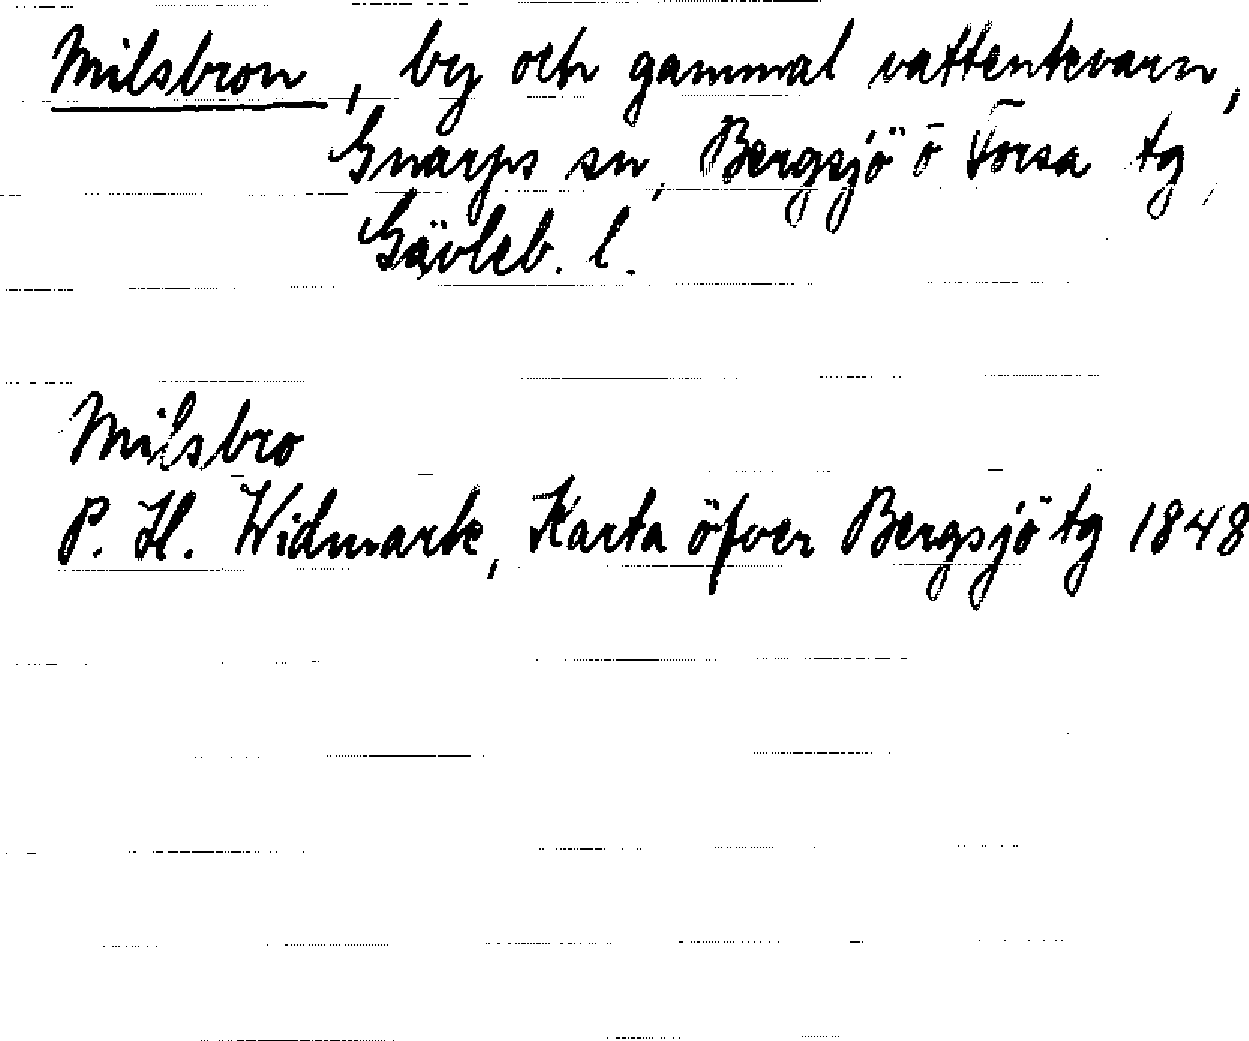 Milsbron, by och gammal vattenkvarn,
Gnarps sn, Bergsjö o Forsa tg,
Gävleb. l.
Milsbro
P. H. Widmark, Karta öfver Bergsjö tg 1848